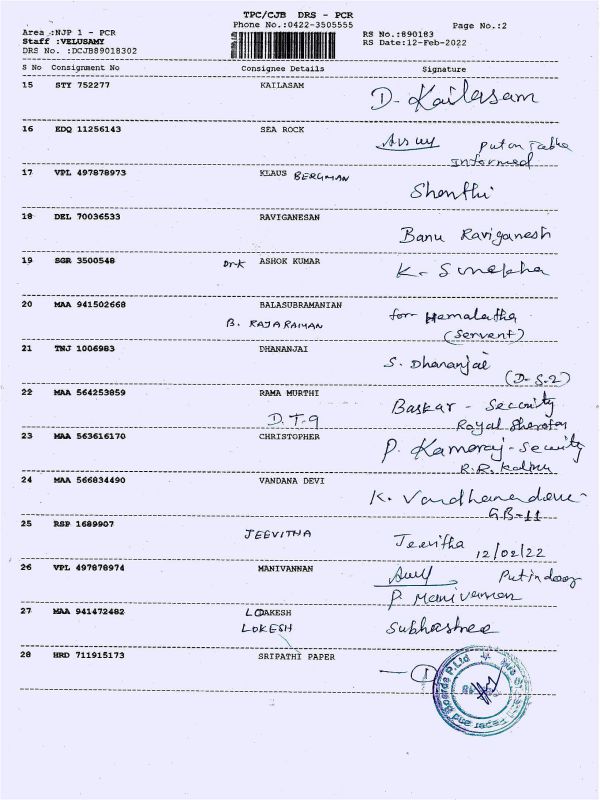 TPC/CJB DRS - PCR
Phone No.:0422-3505555
Page No.:2
Area :NJP 1 - PCR
RS No.:890183
Staff :VELUSAMY
RS Date:12-Feb-2022
DRS No. :DCJB89018302
S No Consignment No Consignee Details Signature
15 STY 752277 KAILASAM D. Kailasam
16 EDQ 11256143 SEA ROCK
Put on Table
Informed
17 VPL 497878973 KLAUS BERGMAN Shenthi
18 DEL 70036533 RAVIGANESAN Banu Raviganesh
19 SGR 3500548 Dr-K ASHOK KUMAR K. Sunekha
20 MAA 941502668 BALASUBRAMANIAN for Hemalatha
B. RAJARAMAN (Servent)
21 TNJ 1006983 DHANANJAI S. Dhananjai
(D-S-2)
22 MAA 564253859 RAMA MURTHI Baskar - Security
D.T-9 Royal
23 MAA 563616170 CHRISTOPHER P. Kamaraj - Security
R.R.
24 MAA 566834490 VANDANA DEVI K. Vandhanadevi
GB-11
25 RSP 1689907 JEEVITHA Jeevitha 12/02/22
26 VPL 497878974 MANIVANNAN Put in door
P. Manivannan
27 MAA 941472482 LOAKESH
LOKESH Subhastree
28 HRD 711915173 SRIPATHI PAPER
1
Sripathi Paper and Boards P.Ltd